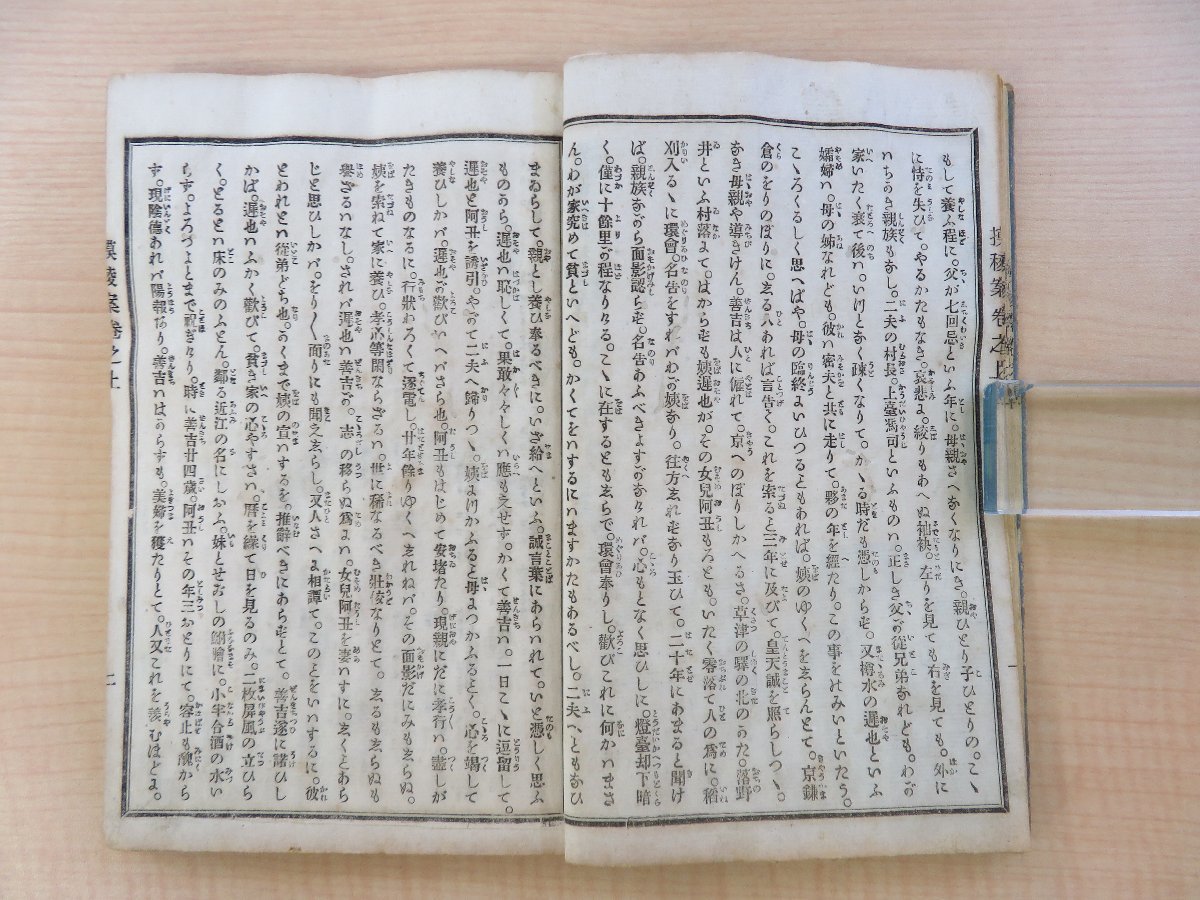 もして養ふ程に。父が七回忌といふ年に。母親さへなくなりにき。親ひとり子ひとりの。こゝ
に恃を失ひて。やるかたもなき。哀悲よ絞りもあへぬ袖袂。左りを見ても右を見ても。外に
ハちかき親族もなし。二夫の村長。上臺馮司といふものハ。正しき父が従兄弟なれども。わが
家いたく衰て後ハ。いけとなく疎くなりて。かゝる時だも憑しからず。又樽水の遅也といふ
孀婦ハ。母の姉なれども。彼ハ密夫と共に走りて。夥の年を經たり。この事をはみいといたう。
こゝろくるしく思へばや。母の臨終よいひつることもあれば。姨のゆくへをゑらんとて。京鎌
倉のをりのぼりに。ゑる人あれば言告て。これを索ると三年に及びて。皇天誠を照らしつゝ。
なき母親や導きけん。善吉は人に傭れて。京へのぼりしかへるさ。草津の驛の北のかた。落野
井といふ村落よて。はからずも姨遅也が。その女兒阿丑もろとも。いたく零落て人の爲に。稻
刈入るゝに環會。名告をすれバわが姨なり。徃方ゑれずなり玉ひて。二十年にあまると聞け
ば。親族ながら面影認らず。名告あふべきよすがなけれバ。心もとなく思ひしに。燈臺却下暗
く。僅に十餘里が程なりける。こゝに在するともゑらで。環會奉りし。歡びこれに何かハまさ
ん。わが家究めて貧といへども。かくてをハするにハますかたもあるべし。二夫へともなひ
まゐらして。親とし養ひ奉るべきに。いざ給へといふ。誠言葉にあらハれて。いと憑しく思ふ
ものから。遅也ハ恥しくて。果敢々々しくハ應もえせず。かくて善吉ハ。一日こゝに逗留して。
遅也と阿丑を誘引。やがて二夫へ歸りつゝ。姨よけかふると母よつかふるとく。心を竭して
養ひしかバ。遅也が歡びハいへバさら也。阿丑もはじめて安堵たり。現親にだに孝行ハ。盡しが
たきものなるに。行狀わろくて逐電し。廿年餘りゆくへゑれねバ。その面影だにみもゑらぬ。
姨を索ねて家に養ひ。孝心等閑ならざるハ。世に稀なるべき壯佼なりとて。ゑるもゑらぬも
譽ざるハなし。されバ遅也ハ善吉が。志の移らぬ爲よハ。女兒阿丑を妻ハすに。ゑくとあら
じと思ひしかバ。をり〱面りにも聞えゑらし。又人さへよ相譚て。このとをいハするに。彼
とわれとハ従弟どち也。かくまで姨の宣ハするを。推辭べきにあらずとて。善吉遂に諾ひし
かば。遅也ハふかく歡びて。貧き家の心やすさハ。暦を繰て日を見るのみ。二枚屏風の立ひら
く。とるとハ床のみのふとん。鄰る近江の名にしおふ。妹とせおしの鮒鱠に。小半合酒の水い
らず。よろづよとまで祝ぎけり。時に善吉廿四歳。阿丑ハその年三おとりにて。容止も醜から
す。現陰德あれバ陽報あり。善吉ハはからずも。美婦を獲たりとて。人又これを羨むほどよ。